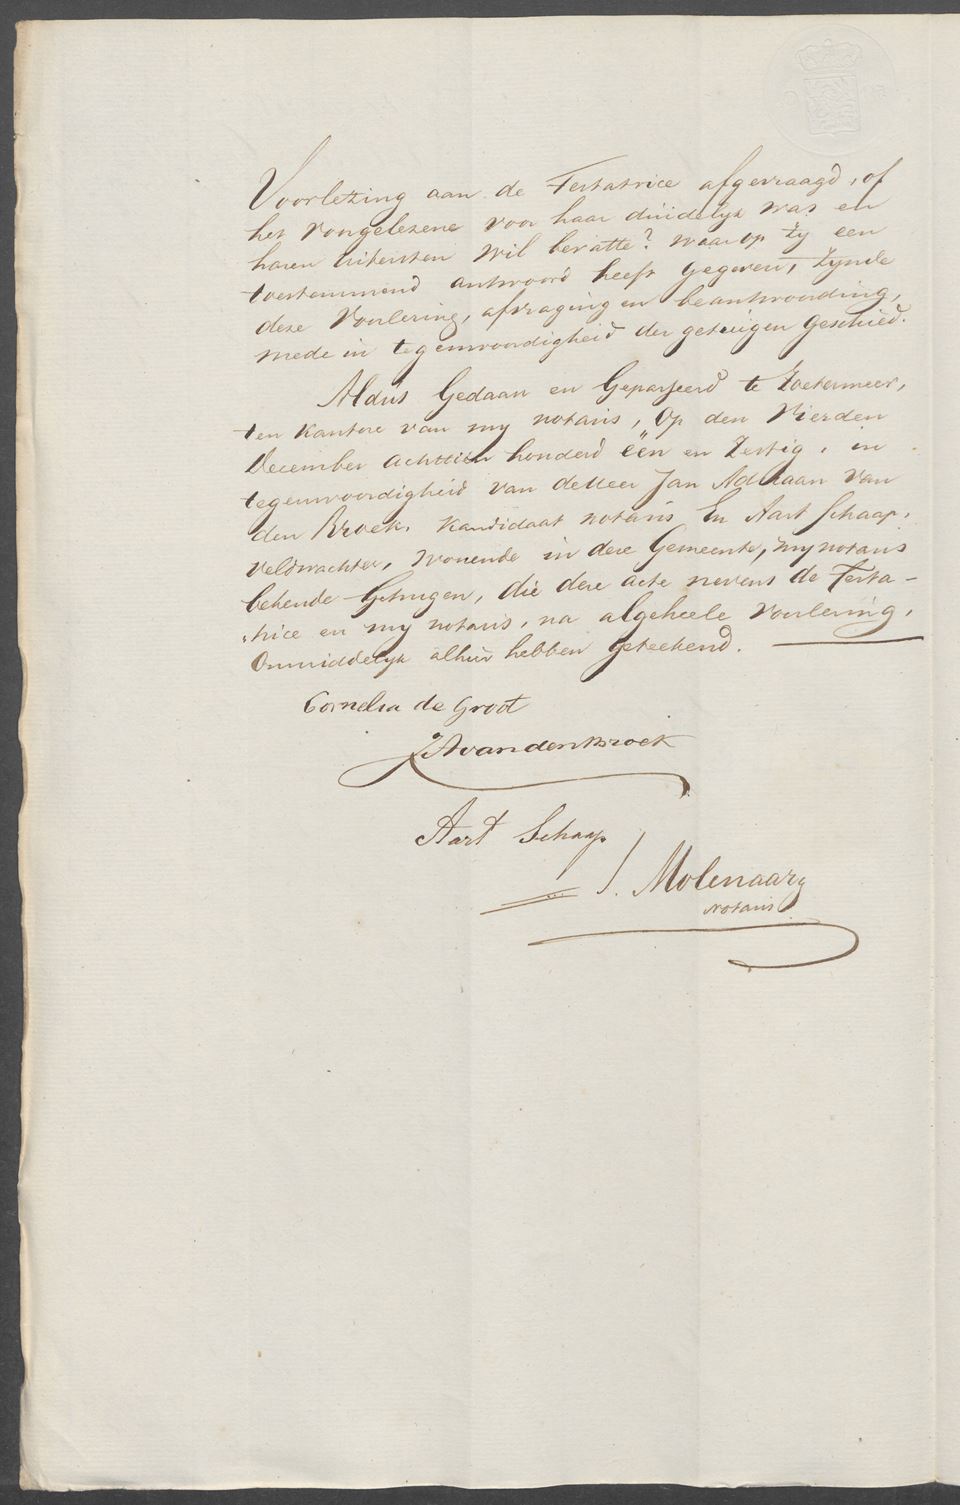 Voorlezing aan de Testatrice afgevraagd, of
het voorgelezene voor haar duidelyk was en
haren uitersten wil bevatte? waarop zy een
toestemmend antwoord heeft gegeven, zynde
deze Voorlezing, afvraging en beantwoording,
mede in tegenwoordigheid der getuigen geschied.
Aldus Gedaan en Gepasseerd te Zoetermeer,
ten kantore van my notaris, op den Vierden
December achttien honderd één en zestig, in
tegenwoordigheid van de Heer Jan Adriaan van
den Broek, kandidaat notaris En Aart Schaap,
veldwachter, wonende in deze Gemeente, my notaris
bekende Getuigen, die deze acte nevens de Testa-
trice en my notaris, na algeheele voorlezing,
Onmiddelyk alhier hebben geteekend.
Cornelia de Groot
JA van den Broek
Aart Schaap
J. Molenaar
Notaris